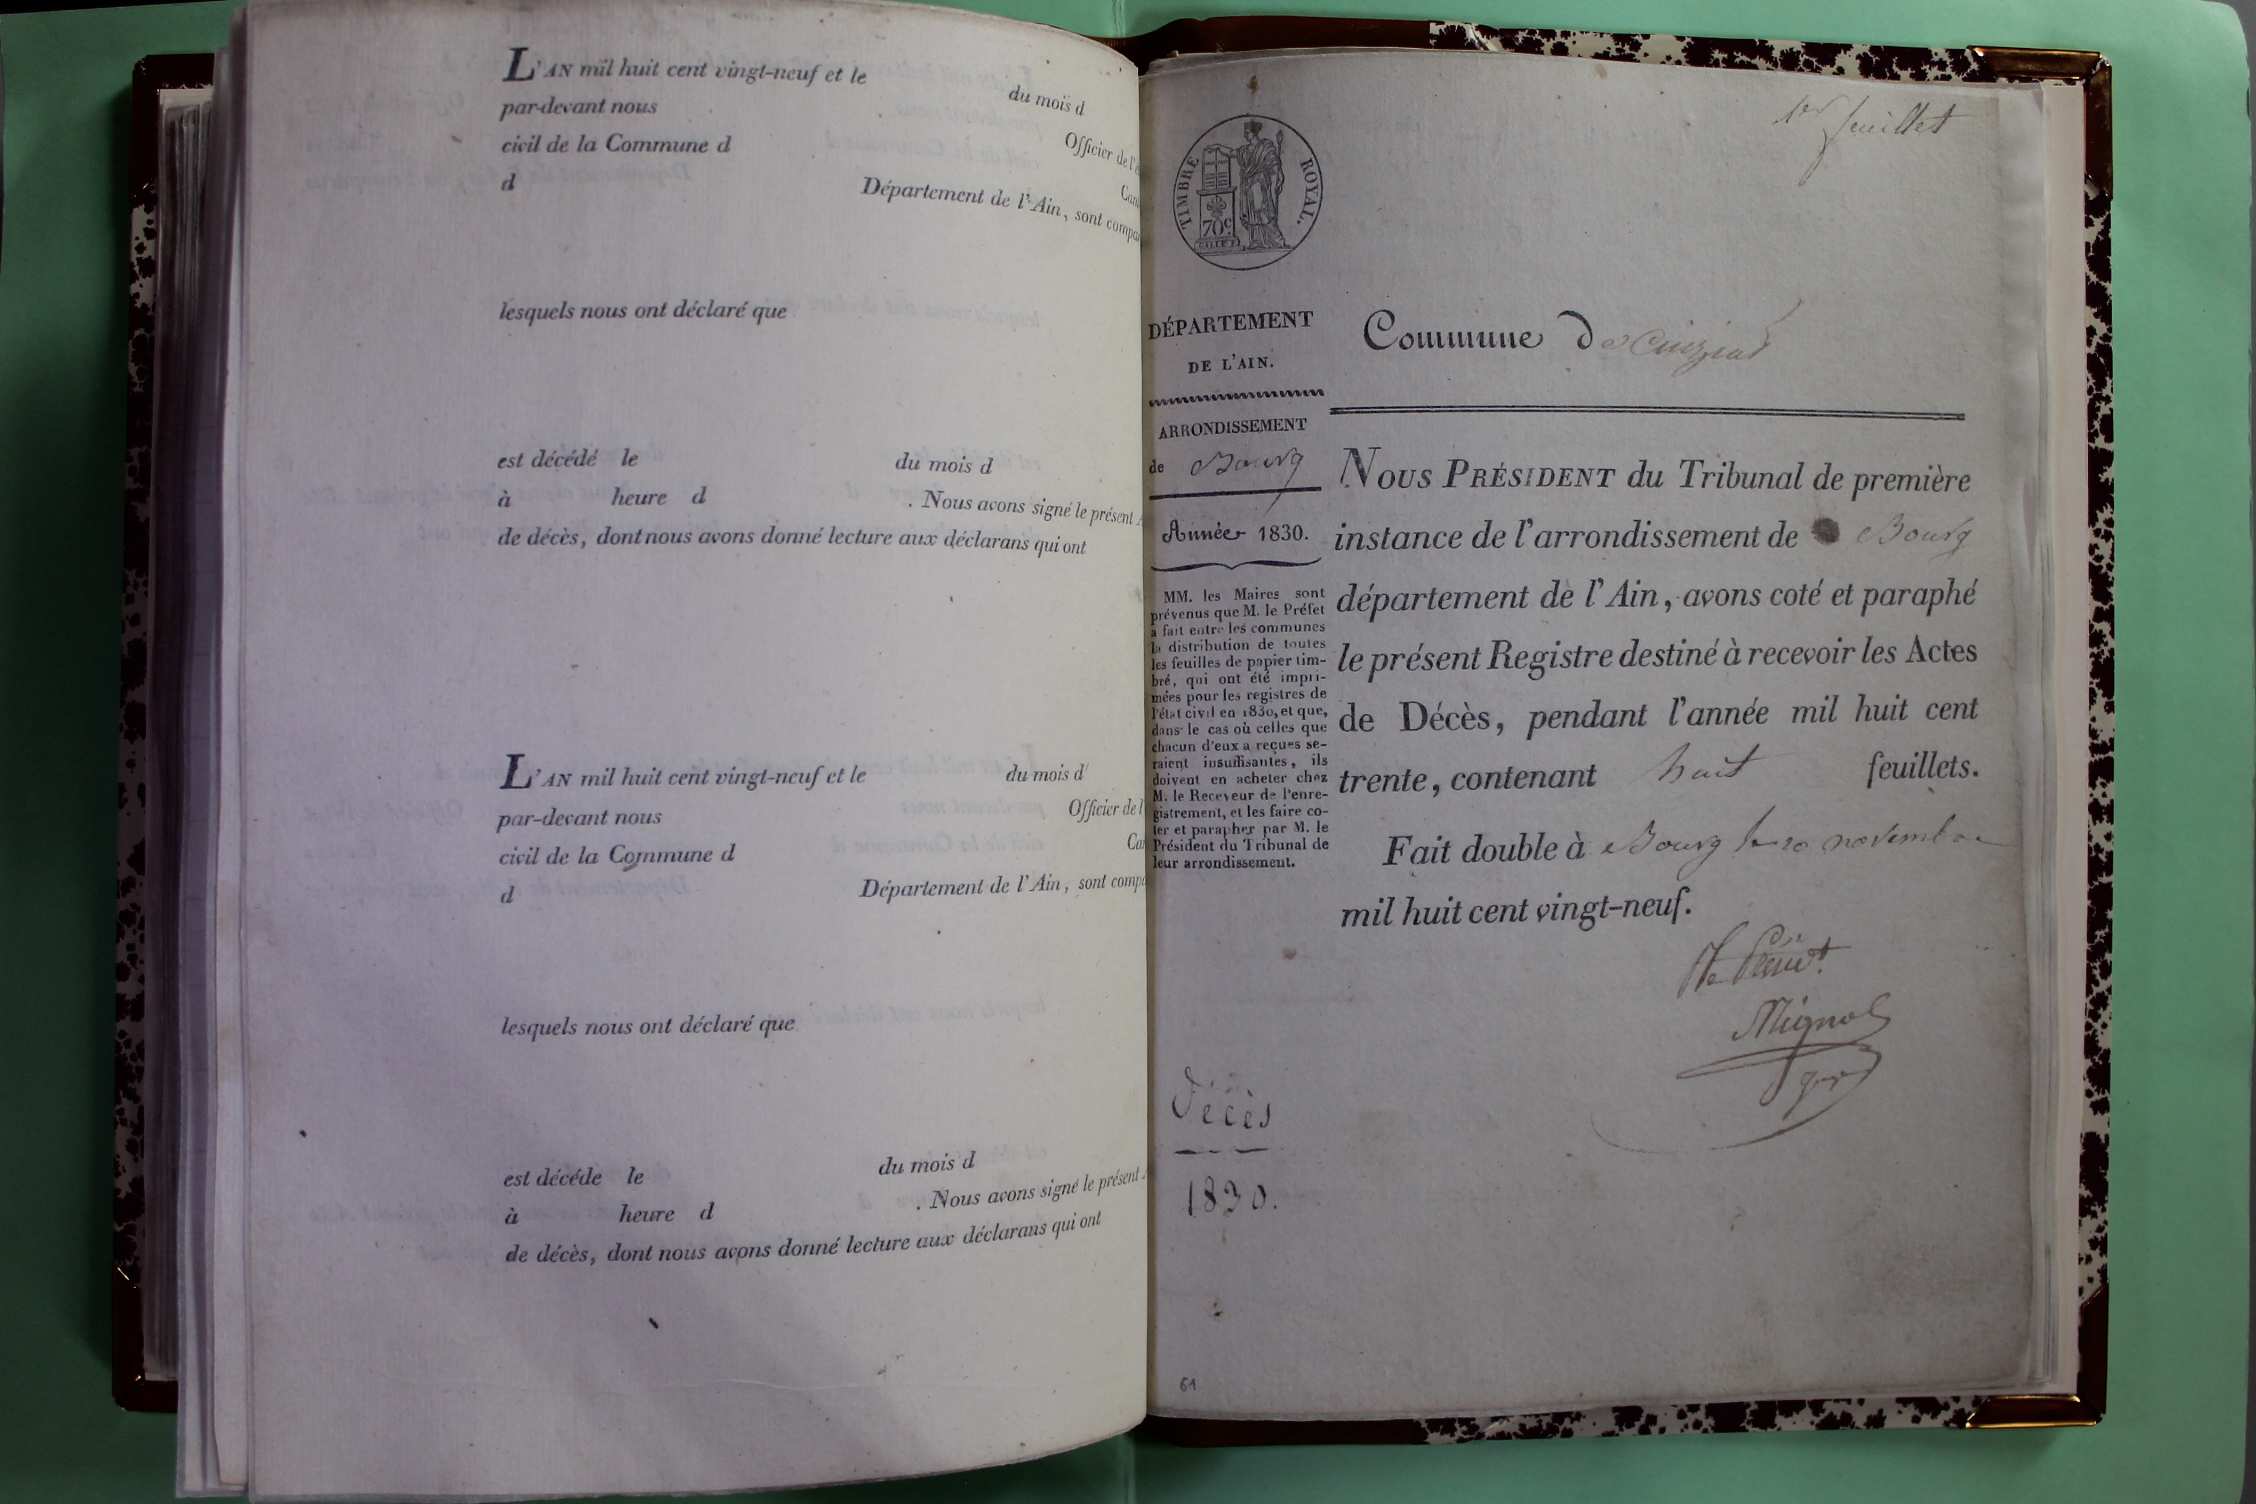 L'AN mil huit cent vingt-neuf et le du mois d
par-devant nous Officier de l'é
civil de la Commune d Can
d Département de l'Ain, sont compa
lesquels nous ont déclaré que
est décédé le du mois d
à heure d . Nous avons signé le présent A
de décès, dont nous avons donné lecture aux déclarans qui ont
L'AN mil huit cent vingt-neuf et le du mois d
par-devant nous Officier de l'
civil de la Commune d Can
d Département de l'Ain, sont compa
lesquels nous ont déclaré que
est décéde le du mois d
à heure d . Nous avons signé le présent A
de décès, dont nous avons donné lecture aux déclarans qui ont
1er feuillet
TIMBRE ROYAL.
70c
DÉPARTEMENT
DE L'AIN.
ARRONDISSEMENT
de Bourg
Année 1830.
MM. les Maires sont
prévenus que M. le Préfet
a fait entre les communes
la distribution de toutes
les feuilles de papier tim-
bré, qui ont été impri-
mées pour les registres de
l'état civil en 1830, et que,
dans le cas où celles que
chacun d'eux a reçues se-
raient insuffisantes, ils
doivent en acheter chez
M. le Receveur de l'enre-
gistrement, et les faire co-
ter et parapher par M. le
Président du Tribunal de
leur arrondissement.
Décès
1830.
61
Commune de Cuiziat
NOUS PRÉSIDENT du Tribunal de première
instance de l'arrondissement de Bourg
département de l'Ain, avons coté et paraphé
le présent Registre destiné à recevoir les Actes
de Décès, pendant l'année mil huit cent
trente, contenant huit feuillets.
Fait double à Bourg le 20 novembre
mil huit cent vingt-neuf.